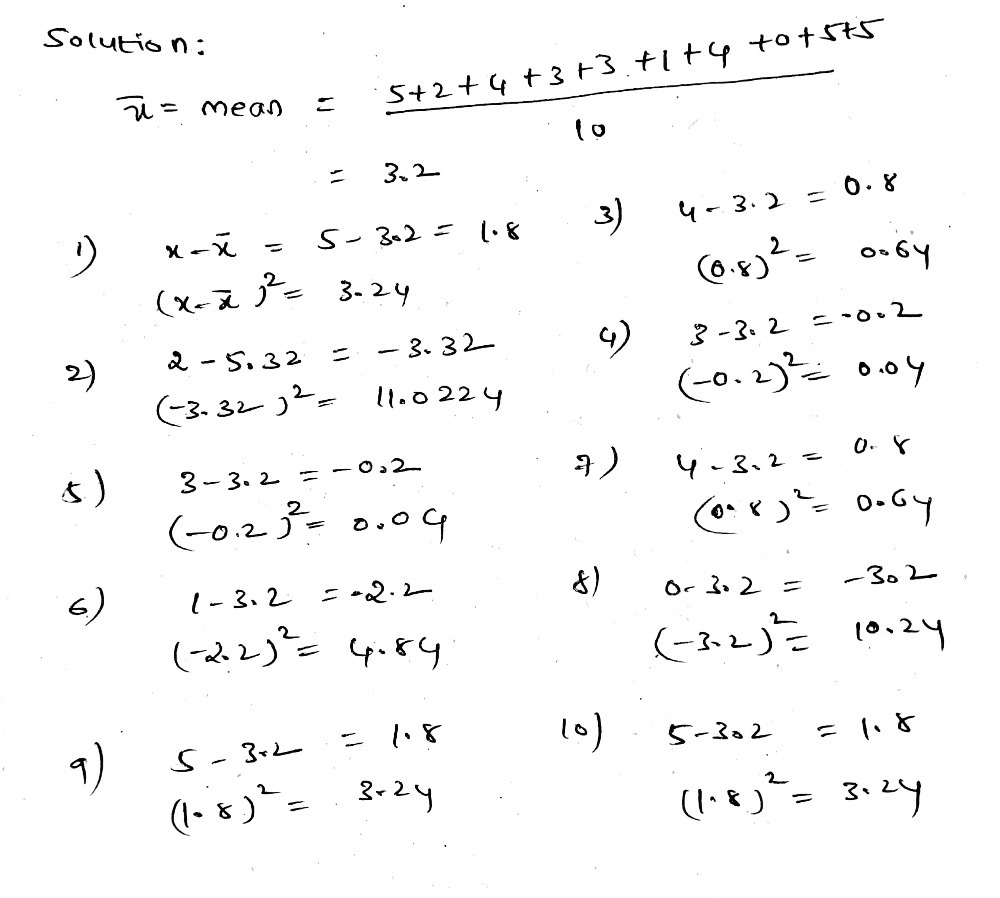 Solution:
x̄ = mean = 5+2+4+3+3+1+4+0+5+5
10
= 3.2
1) x-x̄ = 5-3.2 = 1.8
(x-x̄)² = 3.24
2) 2-5.32 = -3.32
(-3.32)² = 11.0224
3) 4-3.2 = 0.8
(0.8)² = 0.64
4) 3-3.2 = -0.2
(-0.2)² = 0.04
5) 3-3.2 = -0.2
(-0.2)² = 0.04
6) 1-3.2 = -2.2
(-2.2)² = 4.84
7) 4-3.2 = 0.8
(0.8)² = 0.64
8) 0-3.2 = -3.2
(-3.2)² = 10.24
9) 5-3.2 = 1.8
(1.8)² = 3.24
10) 5-3.2 = 1.8
(1.8)² = 3.24